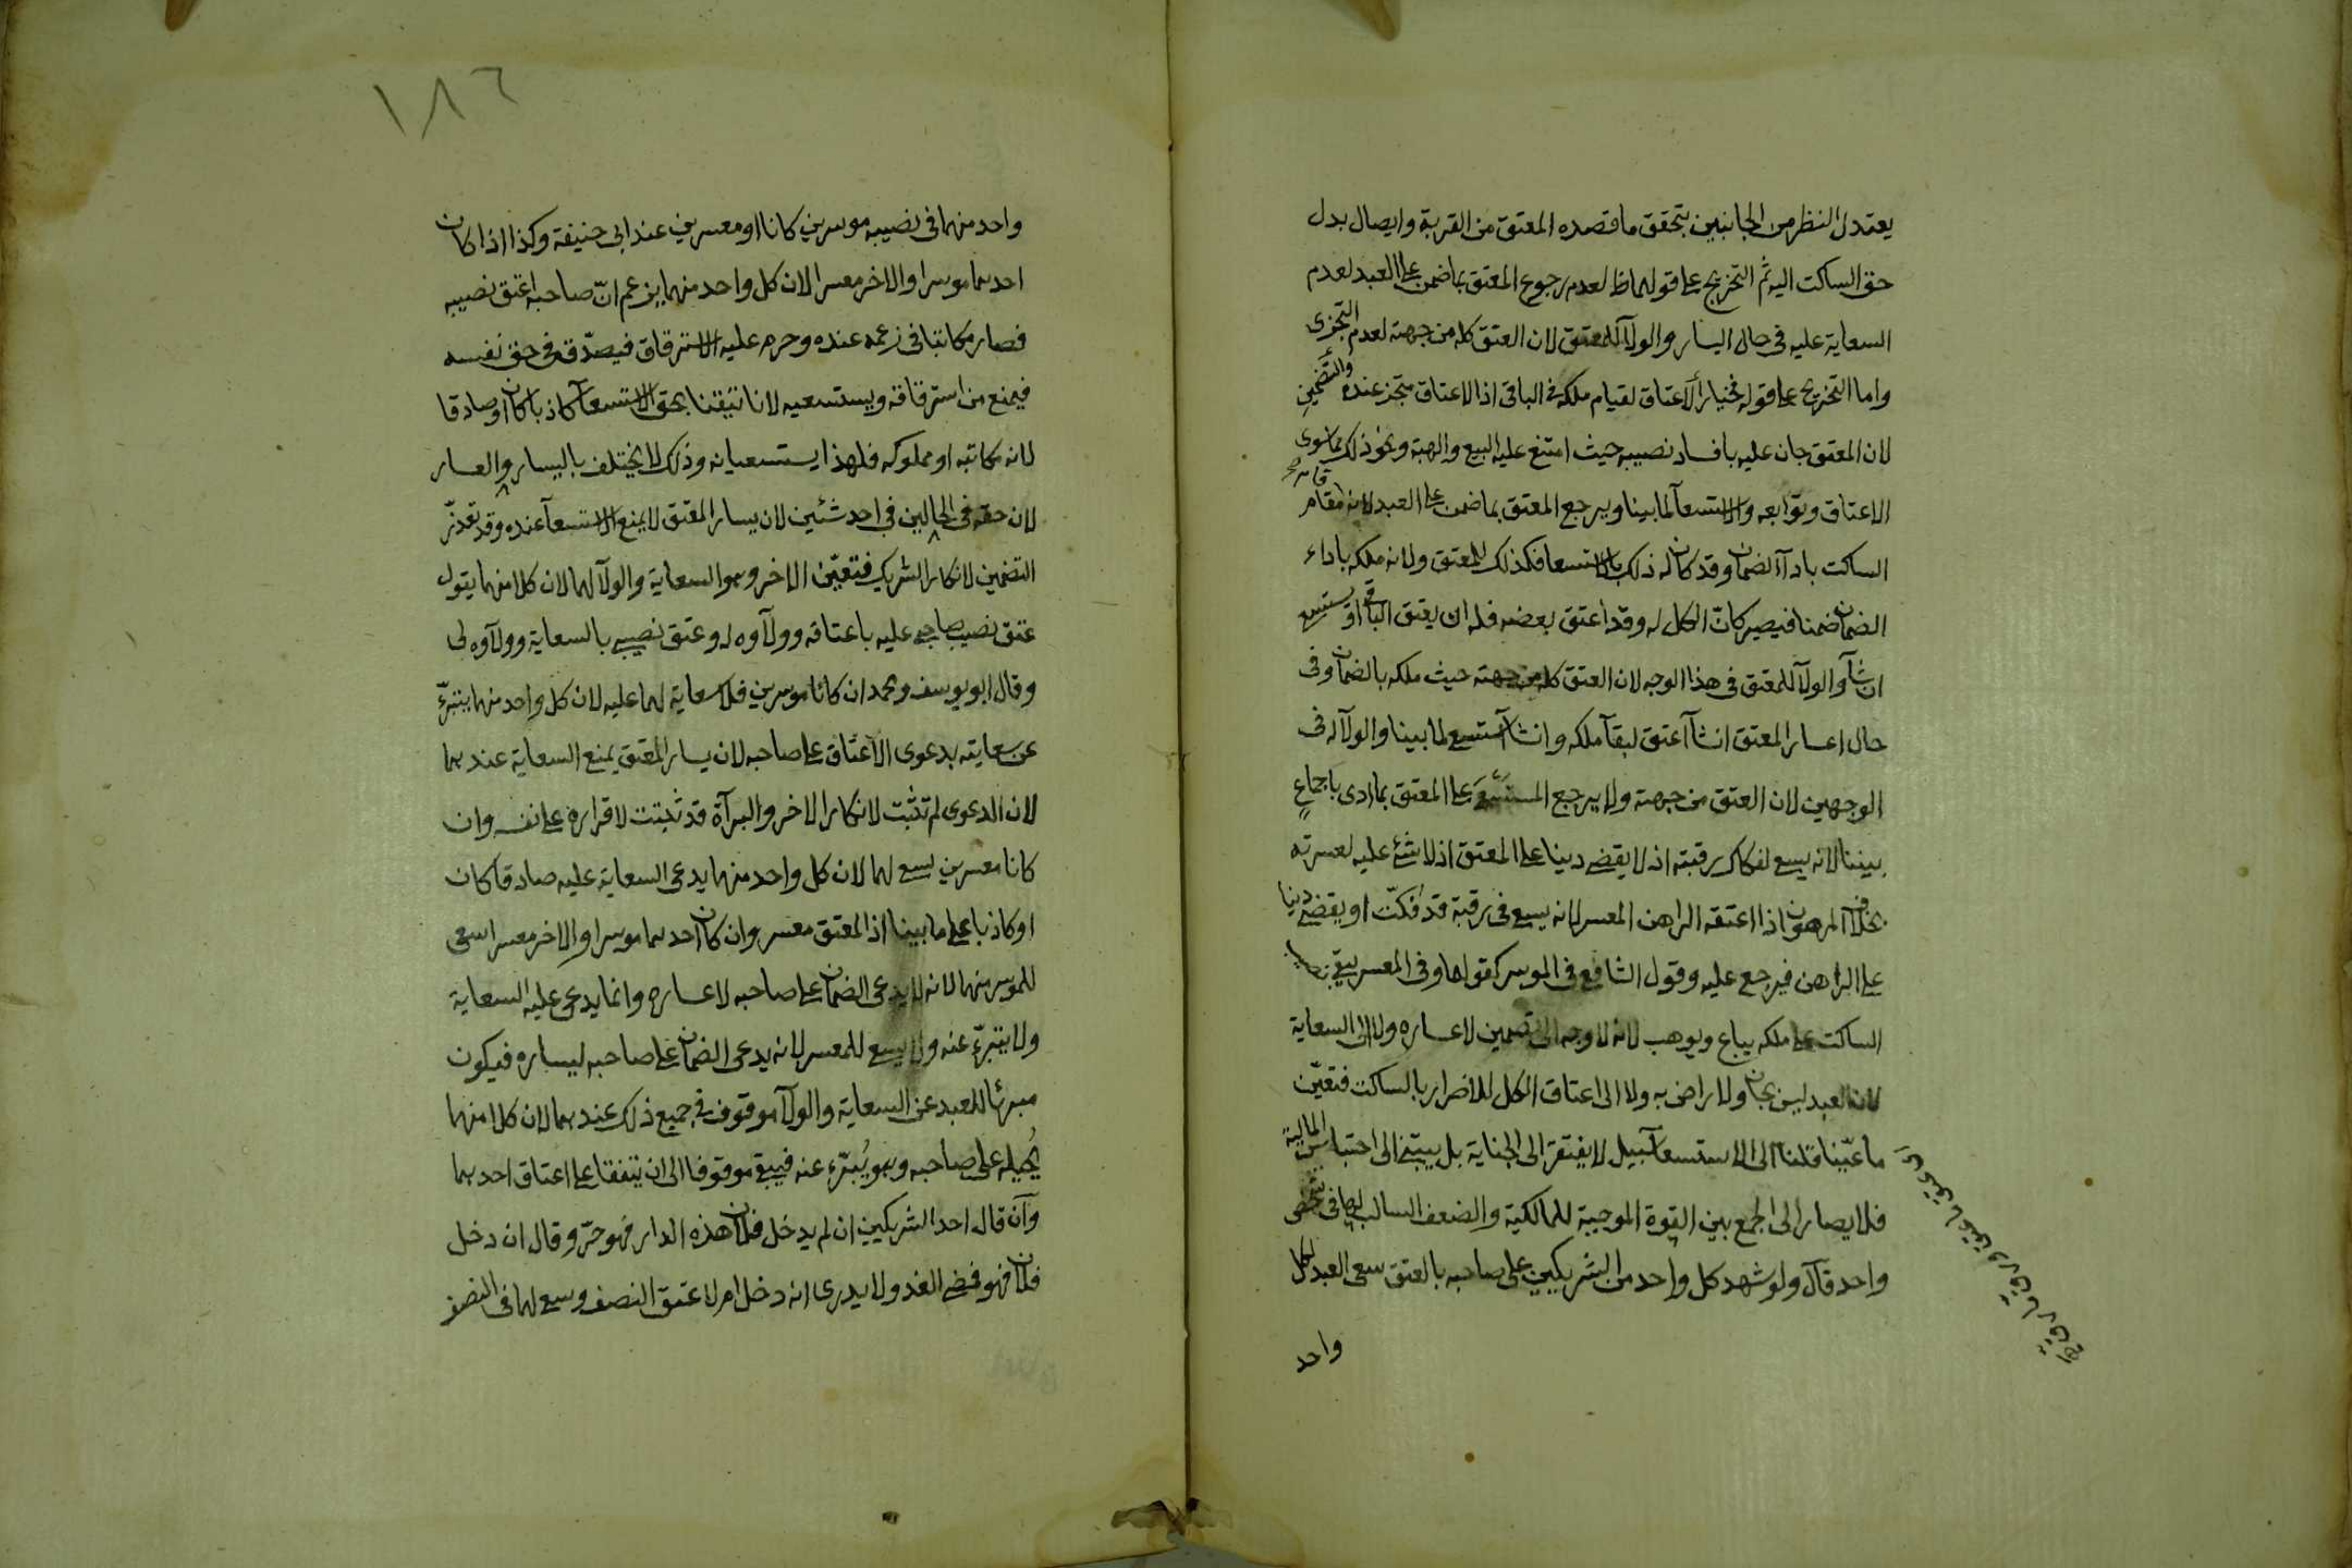 يعتدل النظر من الجانبين بتحقق ما قصده المعتق من القربة وايصال بدل
حق الساكت اليه ثم التخريج على قولهما ظ لعدم رجوع المعتق بما ضمن على العبد لعدم
السعاية عليه فى حال اليسار والولآ للمعتق لان العتق كله من جهته لعدم التجزى
واما التخريج على قوله فخيار الاعتاق لقيام ملكه فى الباقى اذ الاعتاق متجز عنده والتضمين
لان المعتق جان عليه بافساد نصيبه حيث امتنع عليه البيع والهبة ونحو ذلك مما سوى
الاعتاق وتوابعه والاستسعآ لما بينا ويرجع المعتق بما ضمن على العبد لانه قام مقام
الساكت بادآ الضمان وقد كان له ذلك بالاستسعا فكذلك للمعتق ولانه ملكه باداء
الضمان ضمنا فيصير كانّ الكل له وقد اعتق بعضه فله ان يعتق الباقى او يستسعى
ان شآ والولآ للمعتق فى هذا الوجه لان العتق كله من جهته حيث ملكه بالضمان وفى
حال اعسار المعتق ان شآ اعتق لبقآ ملكه وان شآ استسعى لما بينا والولآ له فى
الوجهين لان العتق من جهته ولا يرجع المستسعى على المعتق بما ادى باجماع
بيننا لانه يسعى لفكاك رقبته اذ لا يقضى دينا على المعتق اذ لا شئ عليه لعسرته
بخلاف المرهون اذا اعتقه الراهن المعسر لانه يسعى فى رقبة قد فكّت او يقضى دينا
على الراهن فيرجع عليه وقول الشافعى فى الموسر كقولهما وفى المعسر يبقى نصيب
الساكت على ملكه يباع ويوهب لانه لا وجه الى تضمين لاعساره ولا الى السعاية
لان العبد ليس بجان ولا راض به ولا الى اعتاق الكل للاضرار بالساكت فتعيّن
ما عيّنا قلنا الى الاستسعآ سبيل لا يفتقر الى الجناية بل يبتنى الى احتباس المالية
فلا يصار الى الجمع بين القوة الموجبة للمالكية والضعف السالب لها فى شخص
واحد قال ولو شهد كل واحد من الشريكين على صاحبه بالعتق سعى العبد لكل
واحد
١٨٦
واحد منهما فى نصيبه موسرين كانا او معسرين عند ابى حنيفة وكذا اذا كان
احدهما موسرا والاخر معسرا لان كل واحد منهما يزعم انّ صاحبه اعتق نصيبه
فصار مكاتبا فى زعمه عنده وحرم عليه الاسترقاق فيصدّق فى حق نفسه
فيمنع من استرقاقه ويستسعيه لانا تيقنا بحق الاستسعآ كاذبا كان او صادقا
لانه مكاتبه او مملوكه فلهذا يستسعيانه وذلك لا يختلف باليسار والعسار
لان حقه فى الحالين فى احد شئين لان يسار المعتق لا يمنع الاستسعآ عنده وقد تعذّر
التضمين لانكار الشريك فتعيّن الاخر وهو السعاية والولآ لهما لان كلا منهما يقول
عتق نصيب صاحبى عليه باعتاقه وولآوه له وعتق نصيبى بالسعاية وولآوه لى
وقال ابو يوسف ومحمد ان كانا موسرين فلا سعاية لهما عليه لان كل واحد منهما يتبرّء
عن سعايته بدعوى الاعتاق على صاحبه لان يسار المعتق يمنع السعاية عندهما
لان الدعوى لم تثبت لانكار الاخر والبرآة قد ثبتت لاقراره على نفسه وان
كانا معسرين يسعى لهما لان كل واحد منهما يدعى السعاية عليه صادقا كان
او كاذبا على ما بينا اذ المعتق معسر وان كان احدهما موسرا والاخر معسرا سعى
للموسر منهما لانه لا يدعى الضمان على صاحبه لاعساره وانما يدعى عليه السعاية
ولا يتبرّء عنه ولا يسعى للمعسر لانه يدعى الضمان على صاحبه ليساره فيكون
مبرئا للعبد عن السعاية والولآ موقوف فى جميع ذلك عندهما لان كلا منهما
يُحيله على صاحبه وهو يُبرّء عنه فيبقى موقوفا الى ان يتفقا على اعتاق احدهما
وآن قال احد الشريكين ان لم يدخل فلان هذه الدار فهو حرّ وقال ان دخل
فلان فهو فمضى الغد ولا يدرى انه دخل ام لا عتق النصف وسعى لهما فى النصف